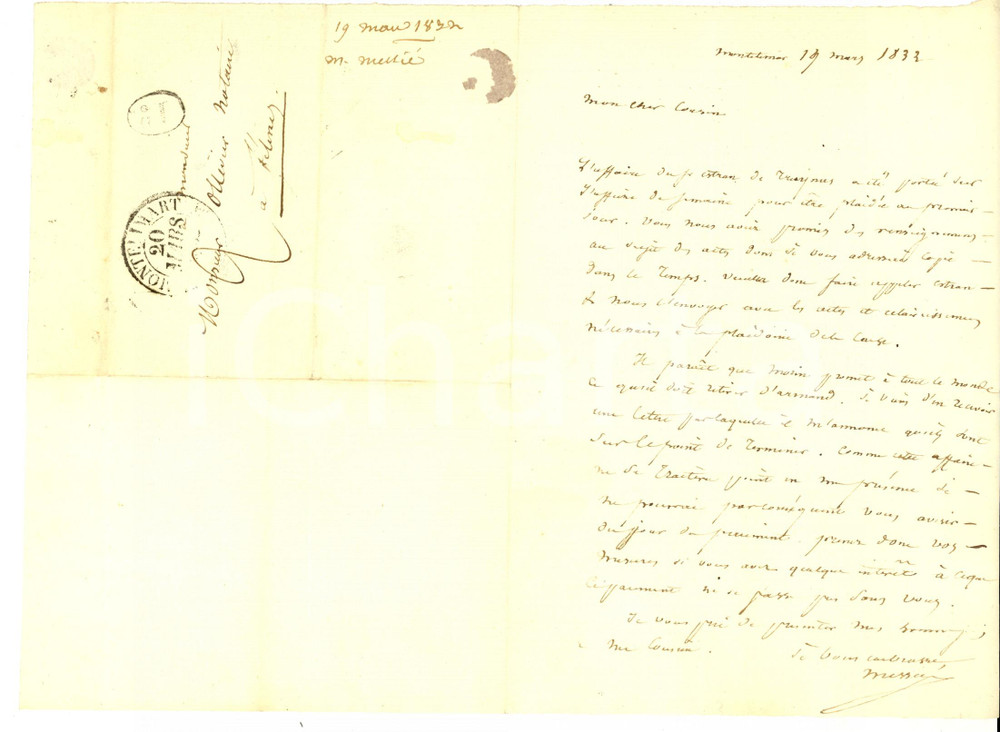 19 mars 1832
M. Messié
Monsieur
Monsieur Ollivier Notaire
à
MONTELIMART
20
MARS
Montelimar 19 mars 1832
Mon cher Cousin
L'affaire du sr estran de a été porté sur
l'affiche de semaine pour être plaidée au premier
jour. Vous nous aviez promis des renseignemens
au sujet des actes dont je vous adressai copie
dans le temps. Veuillez donc faire appeler estran
& nous l'envoyer avec les actes et eclaircissemens
nécessaires à la plaidoirie de la Cause.
Il paraît que morin promet à tout le monde
ce qu'il doit retirer d'armand. Je viens d'en recevoir
une lettre par laquelle il m'annonce qu'ils sont
sur le point de terminer. Comme cette affaire
ne se traitera point en ma présence je
ne pourrai par conséquent vous aviser
du jour du paiement. prenez donc vos
mesures si vous avez quelque intérêt à ce que
le paiement ne se passe pas sans vous.
Je vous prie de présenter mes hommages
à ma Cousine. Je vous embrasse
Messié